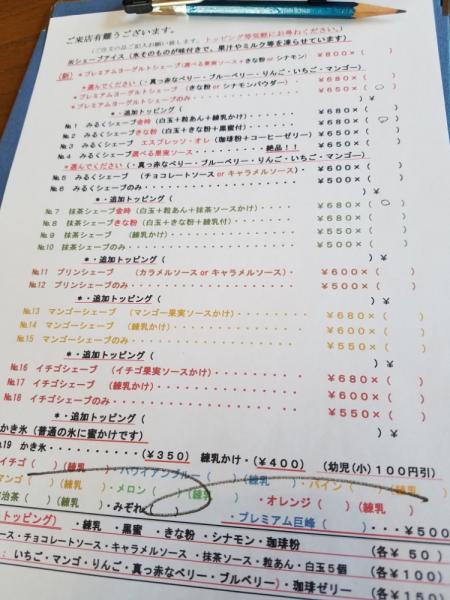 ご来店有難うございます。
(ご注文の品ご記入お願い致します。トッピング等気軽にお尋ねください。)
氷シェーブアイス(氷そのものが味付きで、果汁やミルク等を凍らせています)
(新) *プレミアムヨーグルトシェーブ(選べる果実ソース+きな粉 or シナモン) ¥800×( )
*選んでください(・真っ赤なベリー・ブルーベリー・りんご・いちご・マンゴー)
*プレミアムヨーグルトシェーブ (きな粉 or シナモンパウダー) ¥680×( )
*プレミアムヨーグルトシェーブのみ・・・・・・・・ ¥650×( )
*・追加トッピング( )¥
№1 みるくシェーブ金時(白玉+粒あん+練乳かけ)・・・ ¥680×( )
№2 みるくシェーブきな粉(白玉+きな粉+黒蜜付)・・・ ¥680×( )
№3 みるくシェーブ エスプレッソ・オレ(珈琲粉+コーヒーゼリー) ¥650×( )
№4 みるくシェーブ選べる果実ソース・・・・・・絶品!! ¥650×( )
*選んでください(・真っ赤なベリー・ブルーベリー・りんご・いちご・マンゴー)
№5 みるくシェーブ (チョコレートソース or キャラメルソース)・ ¥600×( )
№6 みるくシェーブのみ・・・・・・・・ ¥500×( )
*・追加トッピング( )¥
№7 抹茶シェーブ金時(白玉+粒あん+抹茶ソースかけ)・・・ ¥680×( )
№8 抹茶シェーブきな粉(白玉+きな粉+練乳付)・・・ ¥680×( )
№9 抹茶シェーブ (練乳かけ)・・・・・ ¥550×( )
№10 抹茶シェーブのみ・・・・・・・・ ¥500×( )
*・追加トッピング( )¥
№11 プリンシェーブ (カラメルソース or キャラメルソース)・・ ¥600×( )
№12 プリンシェーブのみ・・・・・・・・ ¥500×( )
*・追加トッピング( )¥
№13 マンゴーシェーブ (マンゴー果実ソースかけ)・・・ ¥680×( )
№14 マンゴーシェーブ (練乳かけ)・・・・・ ¥600×( )
№15 マンゴーシェーブのみ・・・・・・・ ¥550×( )
*・追加トッピング( )¥
№16 イチゴシェーブ (イチゴ果実ソースかけ)・・・ ¥680×( )
№17 イチゴシェーブ (練乳かけ)・・・・・ ¥600×( )
№18 イチゴシェーブのみ・・・・・・・ ¥550×( )
*・追加トッピング( )¥
かき氷(普通の氷に蜜かけです)
№19 かき氷・・・・・・・・・・(¥350) 練乳かけ・(¥400) (幼児(小)100円引)
イチゴ( )(練乳 )・ハワイアンブルー( )(練乳 )・パイン( )(練乳 )
治茶( )(練乳 )・メロン( )(練乳 )・オレンジ( )(練乳 )
・みぞれ( )・プレミアム巨峰( )・・・¥500
トッピング)・練乳・黒蜜・きな粉・シナモン・珈琲粉 (各¥50)
ース・チョコレートソース・キャラメルソース・抹茶ソース・粒あん・白玉5個 (各¥100)
: いちご・マンゴ・りんご・真っ赤なベリー・ブルベリー)・珈琲ゼリー(各¥150)